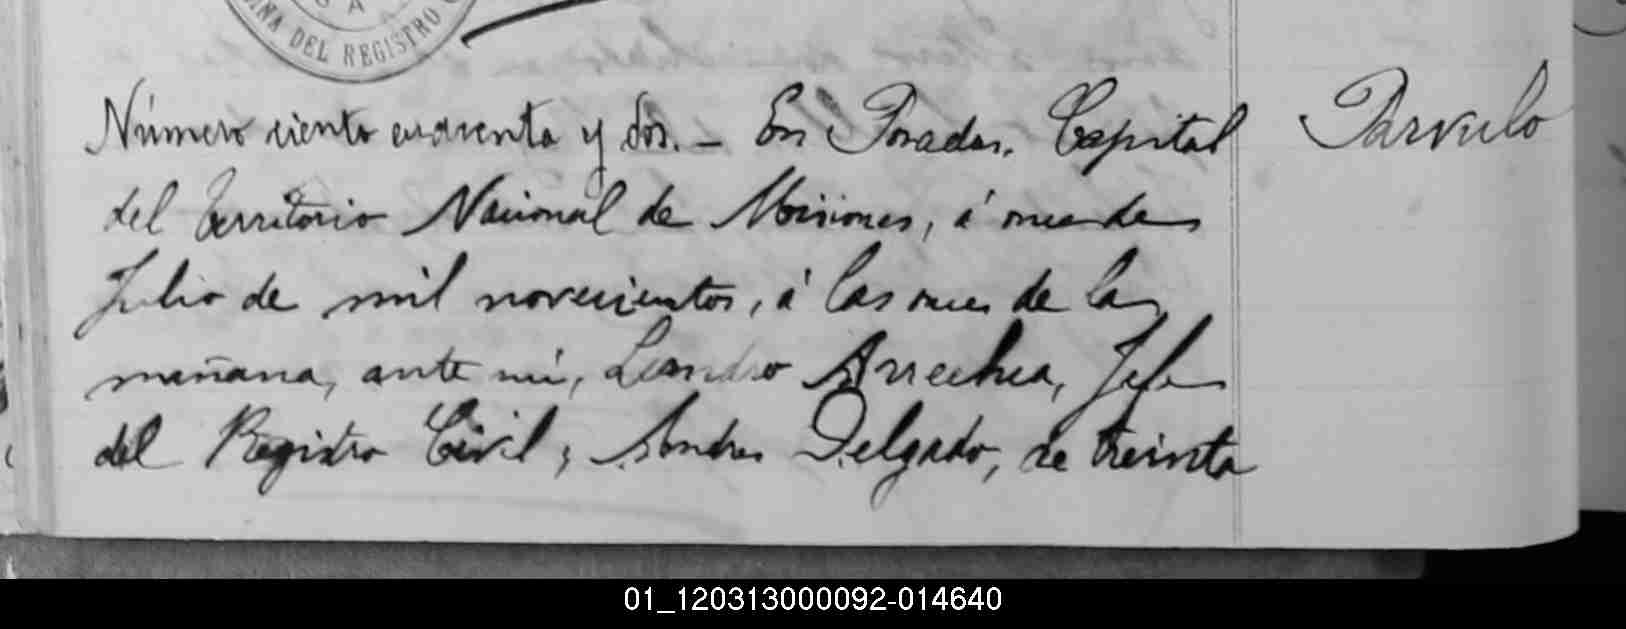 DEL REGISTRO
Número ciento cuarenta y dos. - En Posadas, Capital
Parvulo
del Territorio Nacional de Misiones, á once de
Julio de mil novecientos, á las once de la
mañana, ante mí, Leandro Arrechea, Jefe
del Registro Civil; Andres Delgado, de treinta
01_120313000092-014640